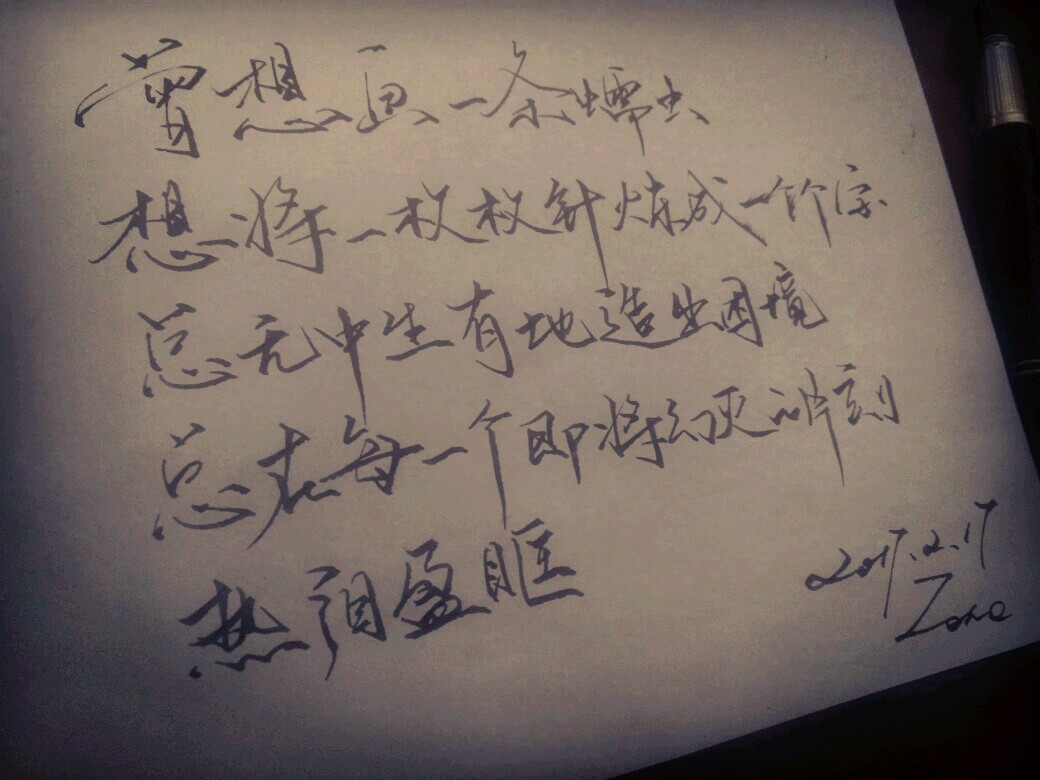 曾想画一条蠕虫
想将一枚枚针炼成一个个字
总无中生有地造出困境
总在每一个即将幻灭的时刻
热泪盈眶
2017.2.17
Zone